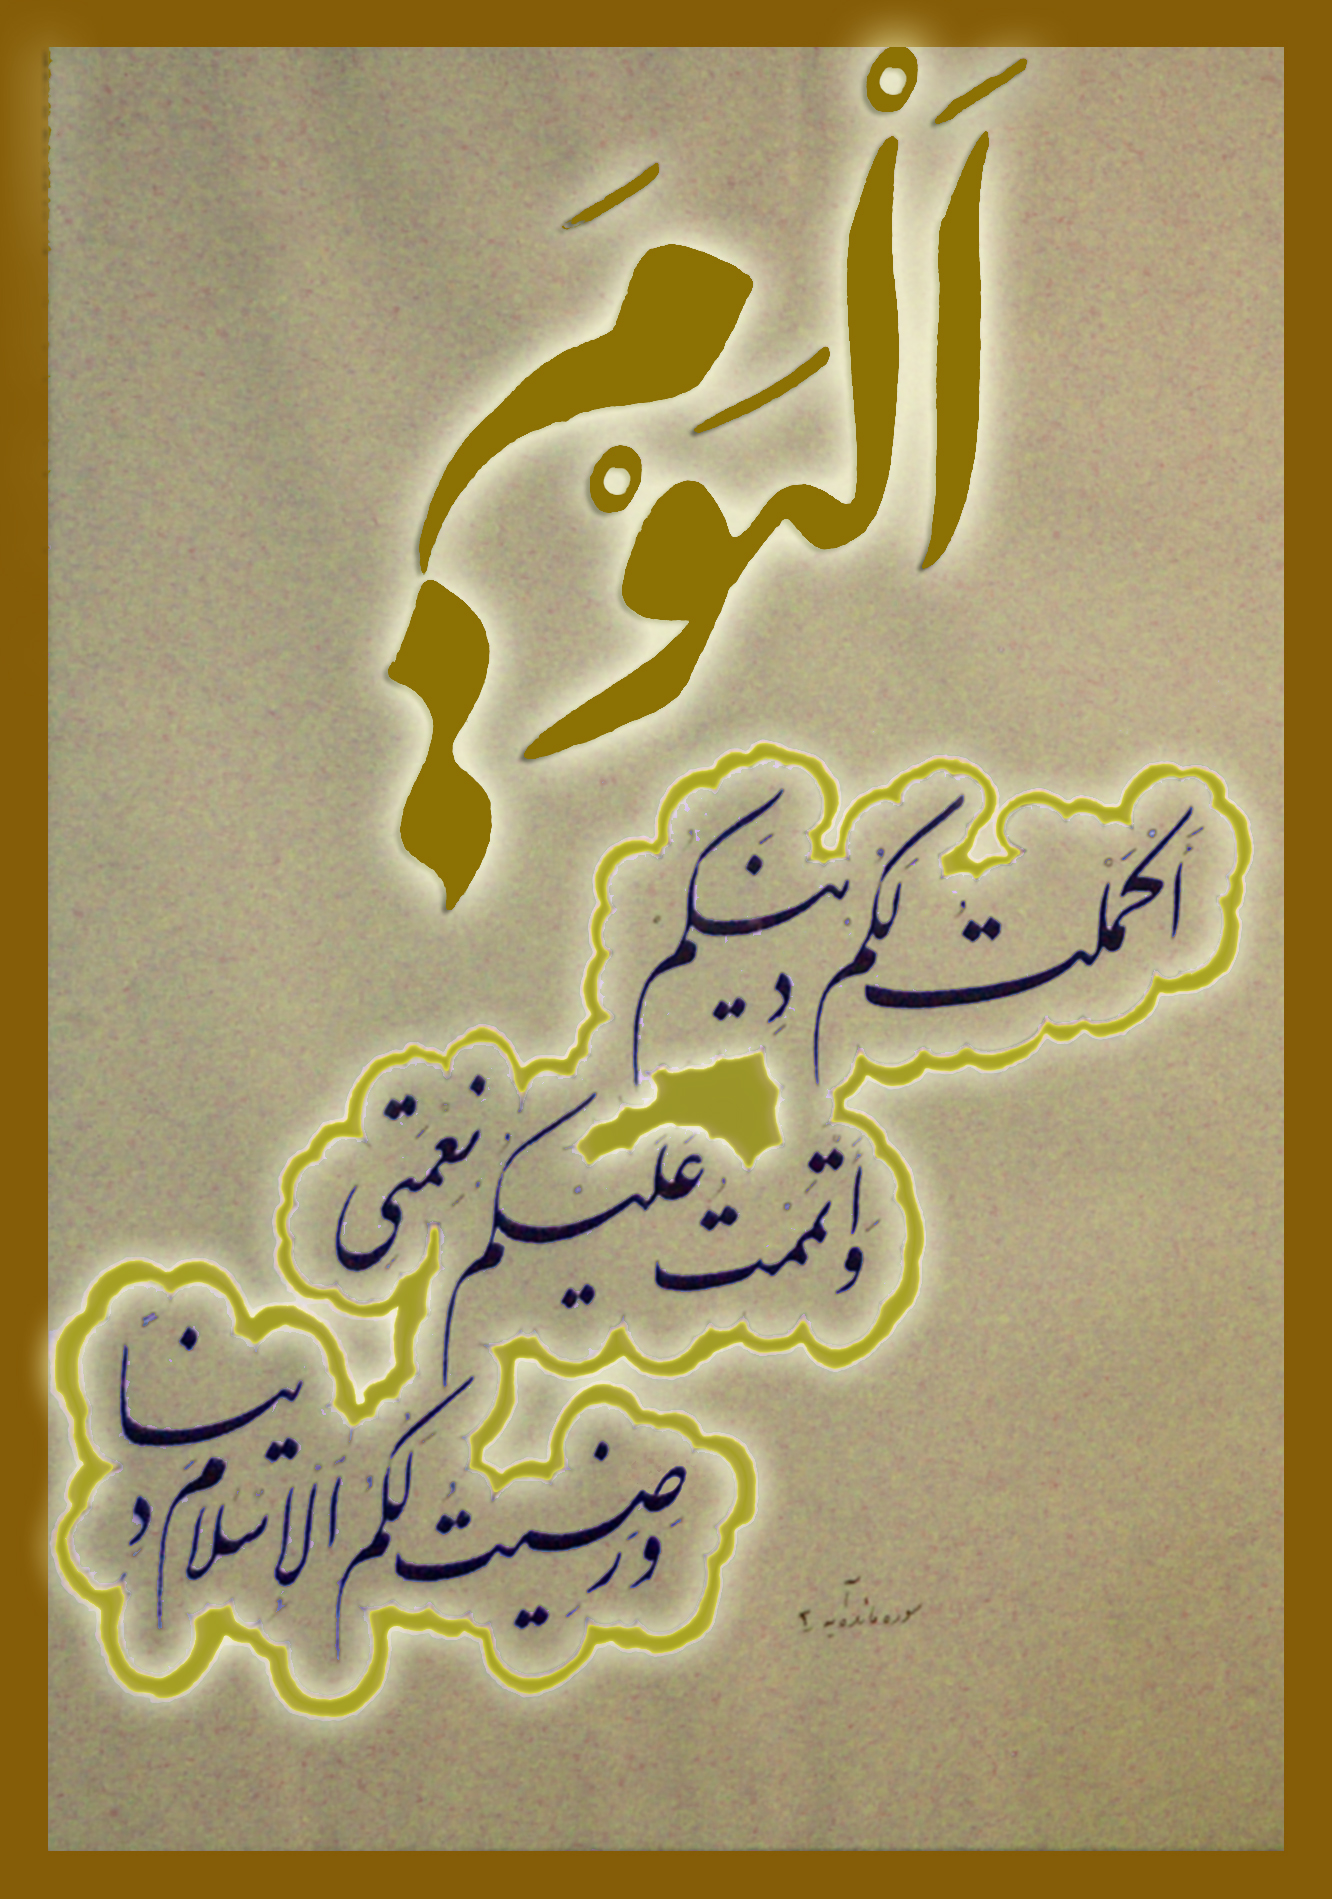 اَلْيَوْمَ
أَكْمَلْتُ لَكُمْ دِينَكُمْ
وَأَتْمَمْتُ عَلَيْكُمْ نِعْمَتِي
وَرَضِيتُ لَكُمُ الْإِسْلَامَ دِينًا
سوره مائده آیه ۳